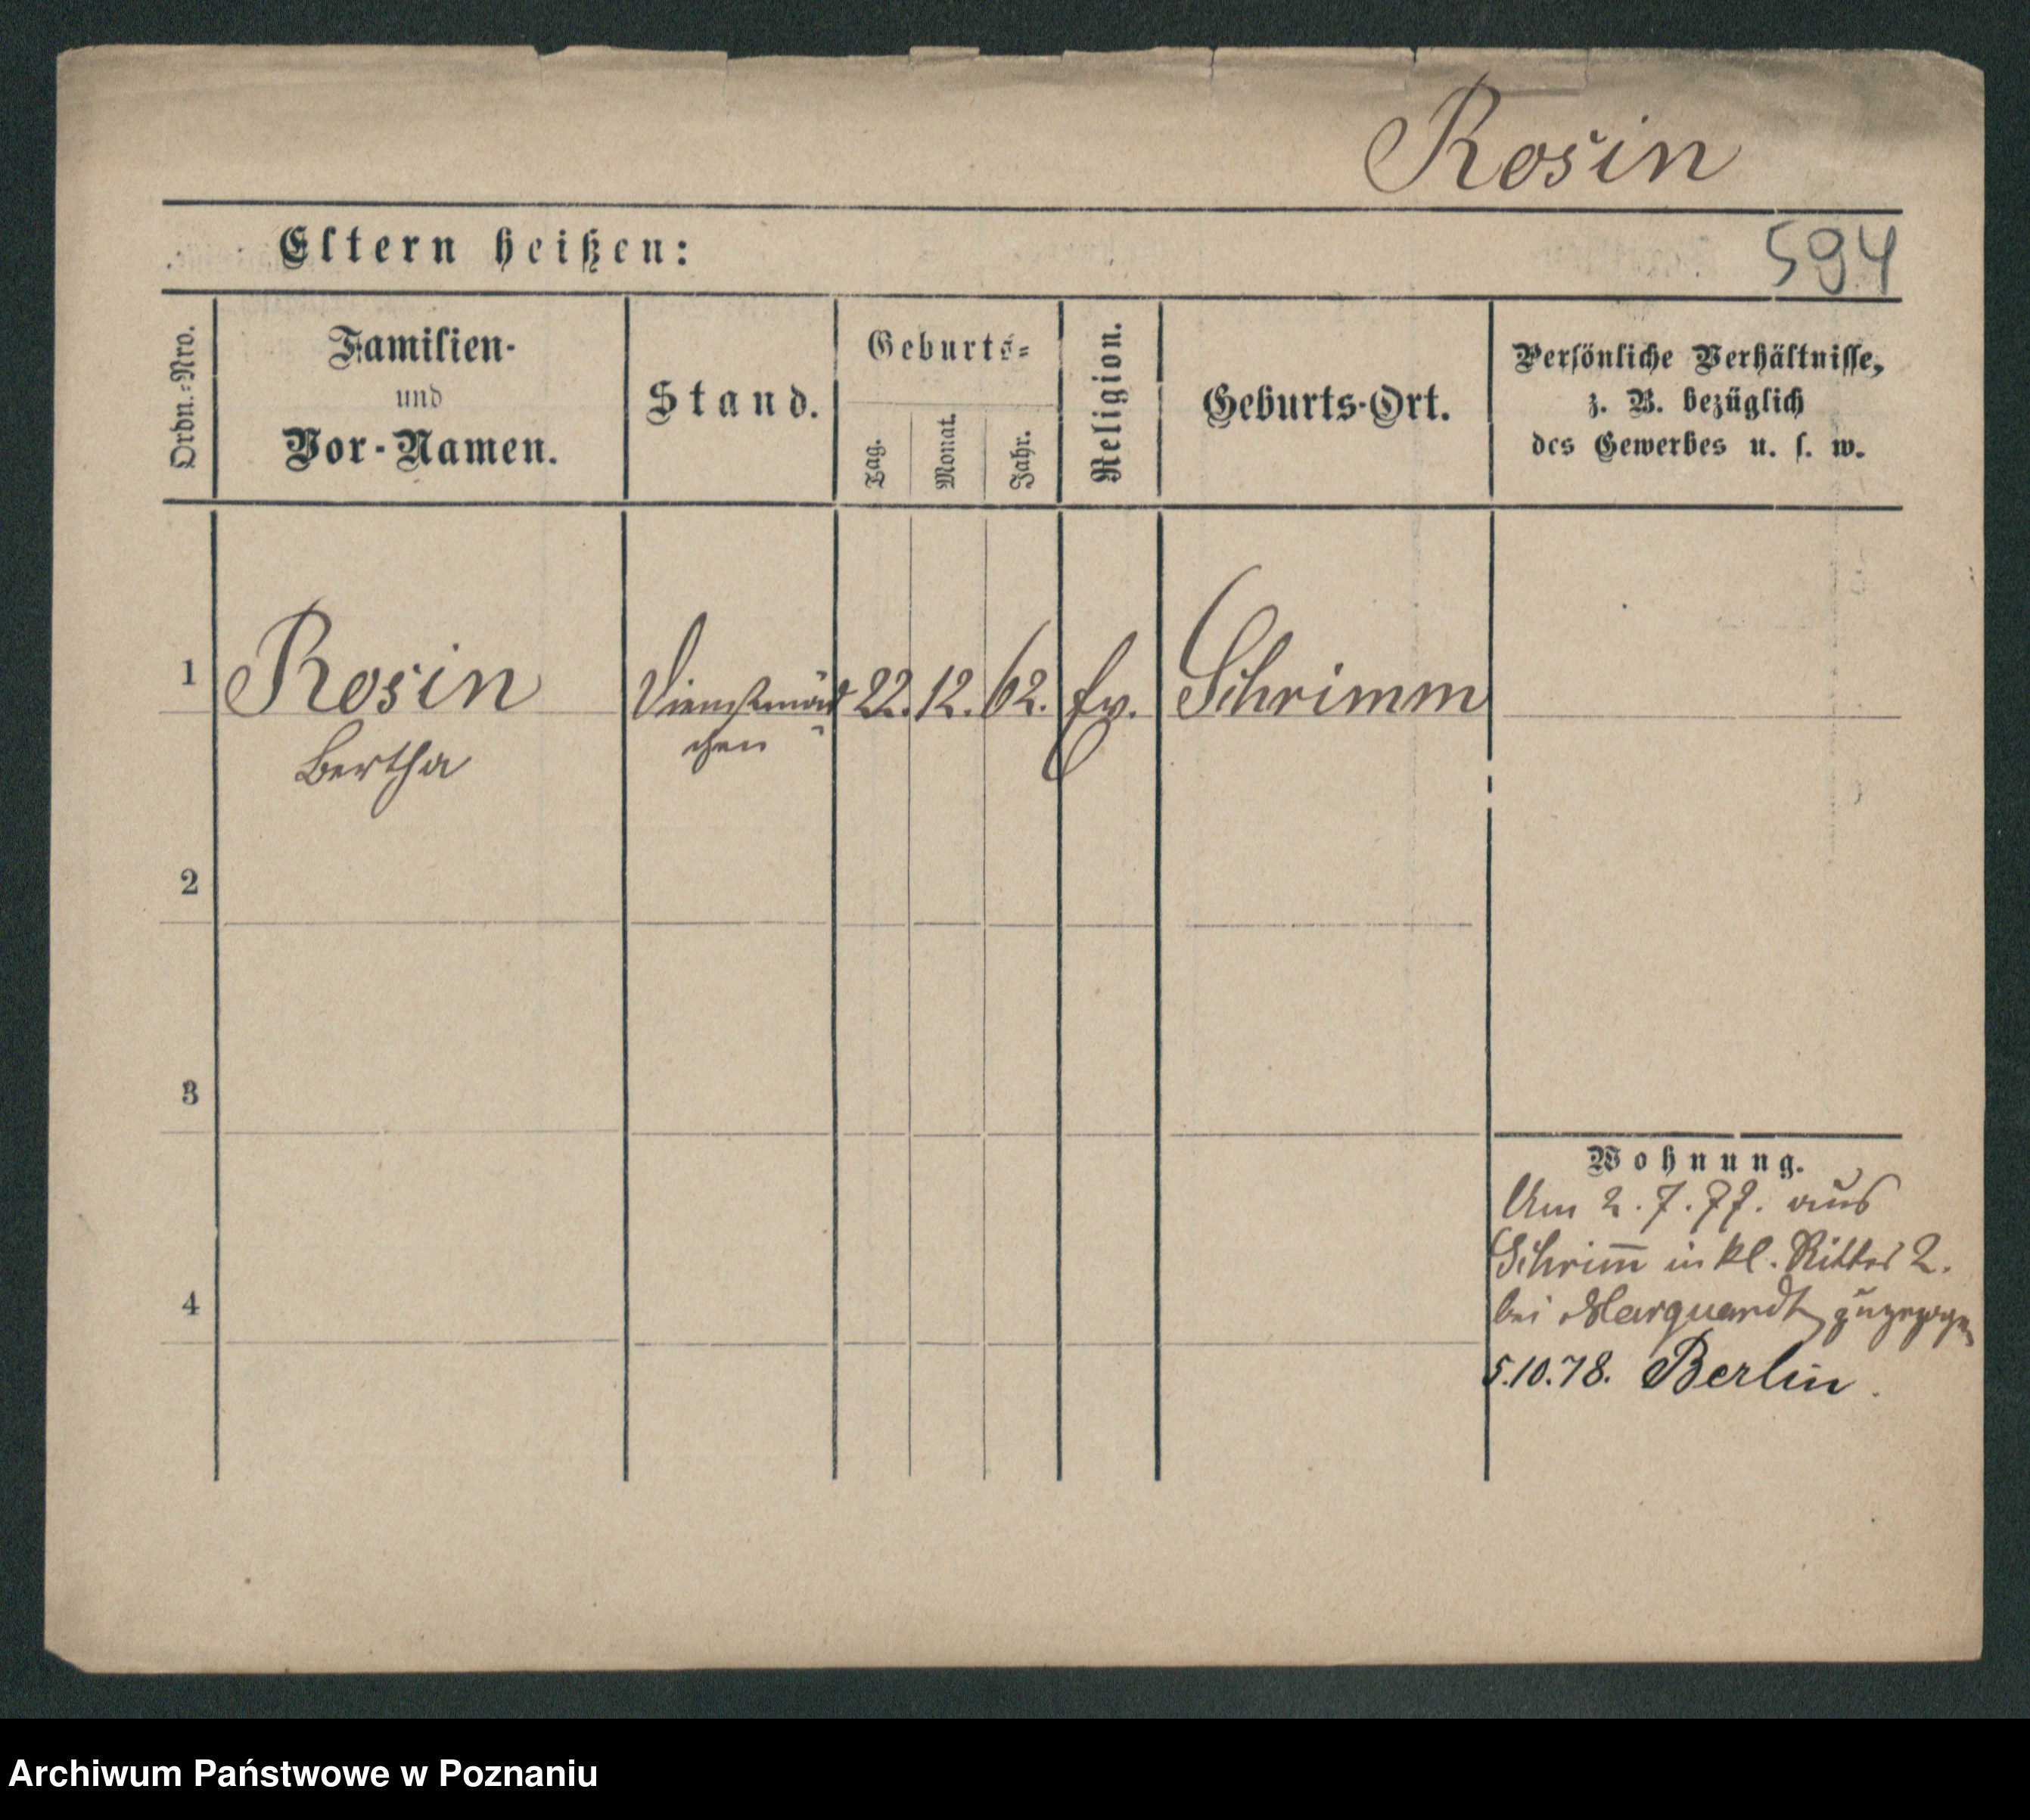 Rosin
594
Eltern heißen:
Ordn.-Nro.
Familien-
und
Vor-Namen.
Stand.
Geburts-
Tag.
Monat.
Jahr.
Religion.
Geburts-Ort.
Persönliche Verhältnisse,
z. B. bezüglich
des Gewerbes u. s. w.
1 Rosin Dienstmäd 22. 12. 62. Ev. Schrimm
Bertha chen
2
3
Wohnung.
Am 2. 7. 77. aus
Schrim̅ in kl. Ritter 2.
4
bei Marquardt zugezogen
5.10.78. Berlin.
Archiwum Państwowe w Poznaniu